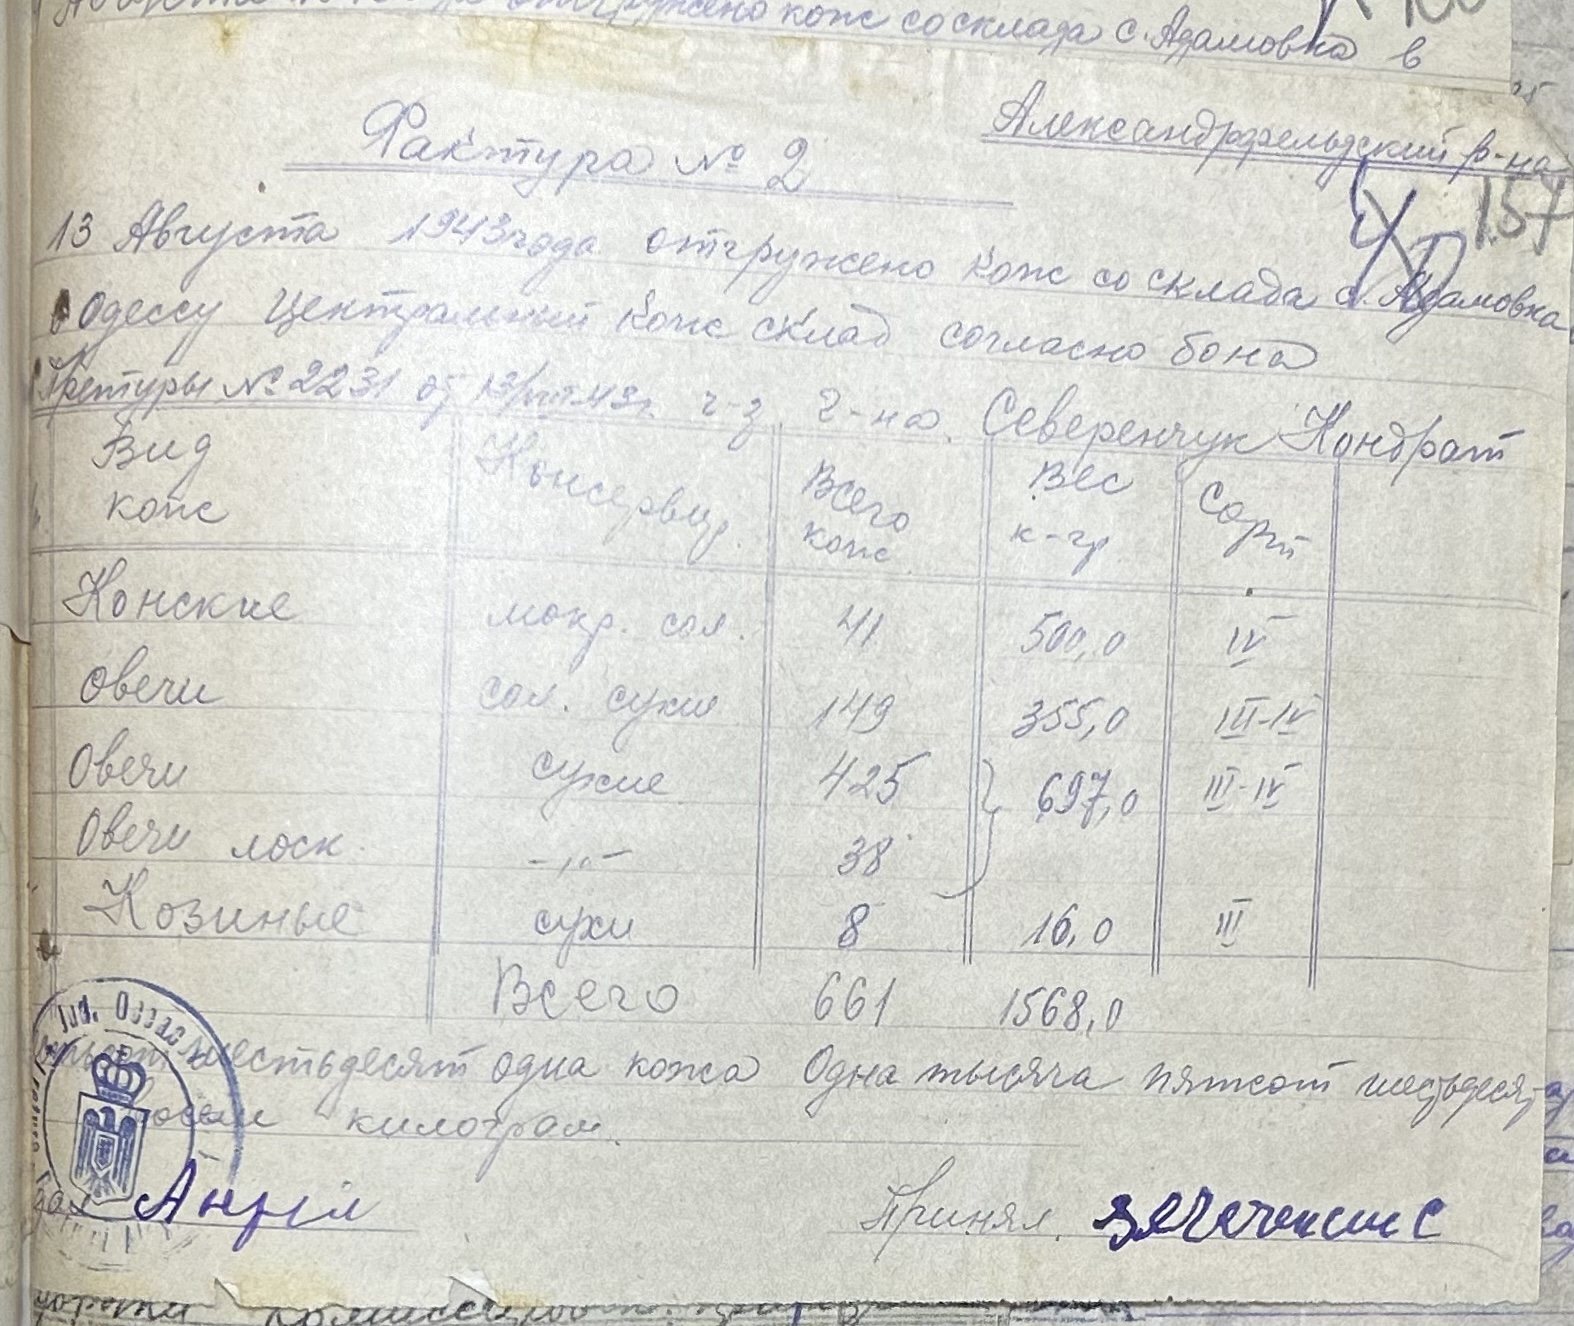 отгружено кож со склада с. Адамовка в
Александрфельдский р-на
Фактура № 2
157
13 Августа 1943 года отгружено кож со склада с. Адамовка
в Одессу Центральный кож склад согласно бона
Претуры № 2231 от 13/VIII 43 г. ч-з г-на. Северенчук Кондрат
Вид кож Консервир. Всего кож Вес к-гр Сорт
Конские мокр. сол. 41 500,0 IV
овечи сол. сухие 149 355,0 III-IV
Овечи сухие 425 697,0 III-IV
Овечи лоск. -„- 38
Козиные сухи 8 16,0 III
Всего 661 1568,0
шестьдесят одна кожа Одна тысяча пятсот шестьдесят
восем килограм.
Jud.
Принял.